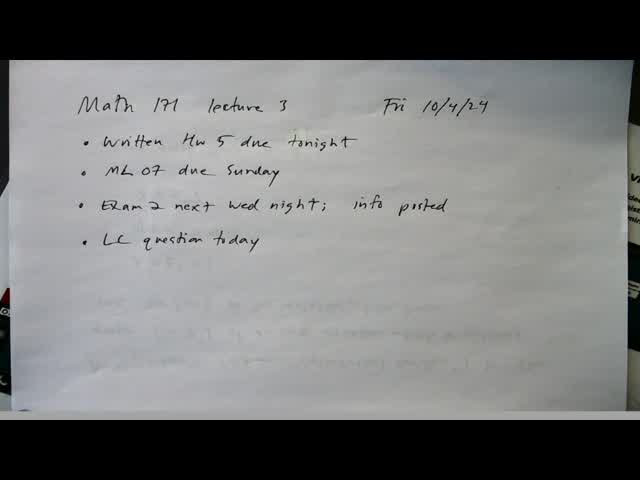 Math 171 lecture 3 Fri 10/4/24
• Written Hw 5 due tonight
• ML 07 due Sunday
• Exam 2 next Wed night; info posted
• LC question today